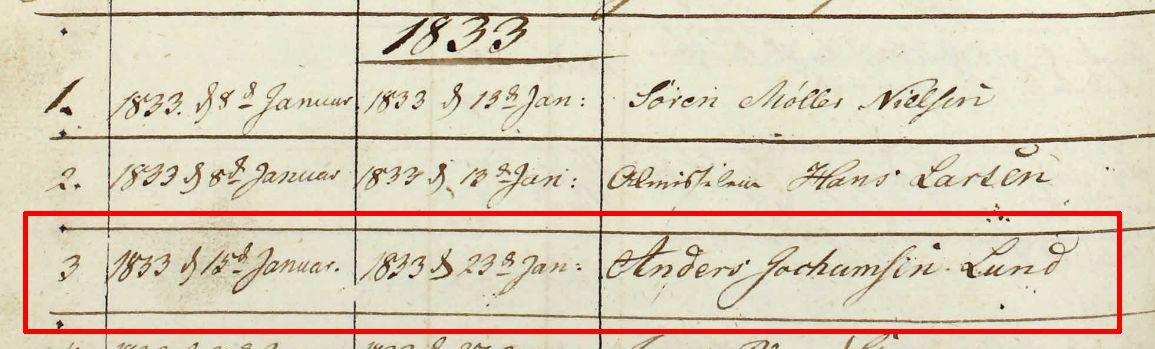 1833
1. 1833. d 8d Januar 1833 d 13d Jan: Søren Møller Nielsen
2. 1833 d 8d Januar 1833 d. 13d Jan: Hans Larsen
3 1833 d 15d Januar. 1833 d 23d Jan: Anders Jochamsin Lund